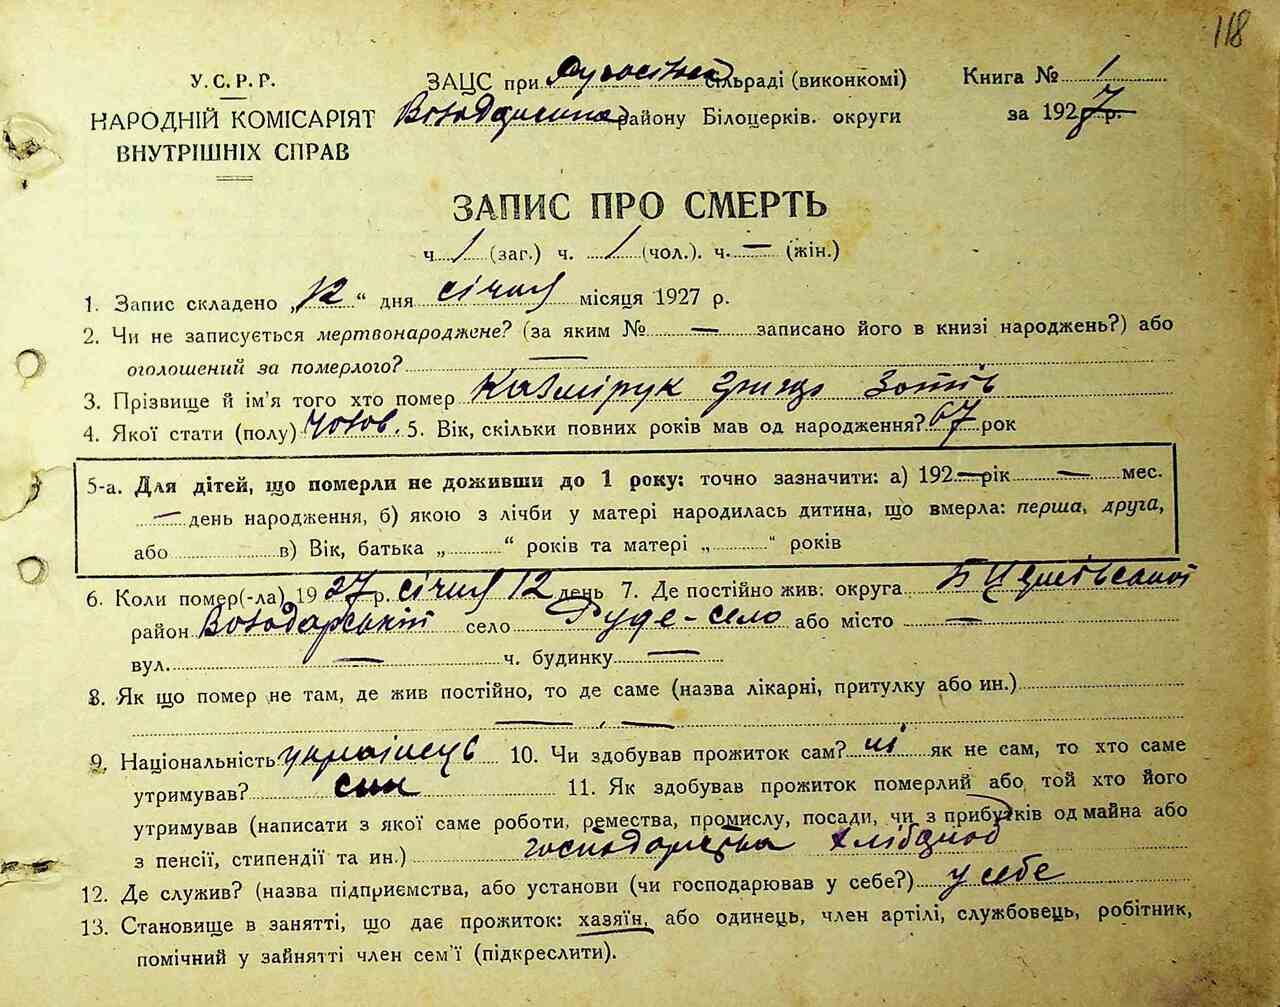 118
У.С.Р.Р.
НАРОДНІЙ КОМІСАРІЯТ
ВНУТРІШНІХ СПРАВ
ЗАЦС при сільраді (виконкомі)
району Білоцерків. округи
Книга № 1
за 1927 р.
ЗАПИС ПРО СМЕРТЬ
ч. 1 (заг.) ч. 1 (чол.). ч. — (жін.)
1. Запис складено „12“ дня січня місяця 1927 р.
2. Чи не записується мертвонароджене? (за яким № — записано його в книзі народжень?) або
оголошений за померлого? —
3. Прізвище й ім'я того хто помер Казмірук Гриць Зотів
4. Якої стати (полу) чолов. 5. Вік, скільки повних років мав од народження? 67 рок
5-а. Для дітей, що померли не доживши до 1 року: точно зазначити: а) 192 — рік — мес.
— день народження, б) якою з лічби у матері народилась дитина, що вмерла: перша, друга,
або в) Вік, батька „ “ років та матері „ “ років
6. Коли помер(-ла) 1927 р. січня 12 день 7. Де постійно жив: округа
район Володарський село Руде-село або місто —
вул. — ч. будинку —
8. Як що помер не там, де жив постійно, то де саме (назва лікарні, притулку або ин.)
— —
9. Національність українець 10. Чи здобував прожиток сам? ні як не сам, то хто саме
утримував? син 11. Як здобував прожиток померлий або той хто його
утримував (написати з якої саме роботи, ремества, промислу, посади, чи з прибутків од майна або
з пенсії, стипендії та ин.) хлібороб
12. Де служив? (назва підприємства, або установи (чи господарював у себе?) у себе
13. Становище в занятті, що дає прожиток: хазяїн, або одинець, член артілі, службовець, робітник,
помічний у зайнятті член сем'ї (підкреслити).